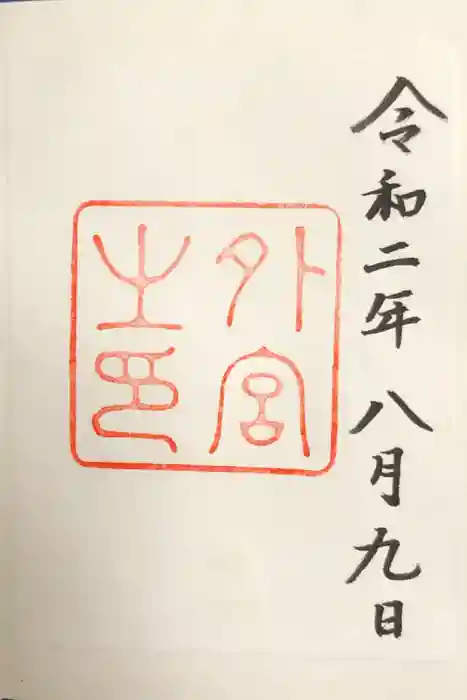 令和二年八月九日
外宮
之印